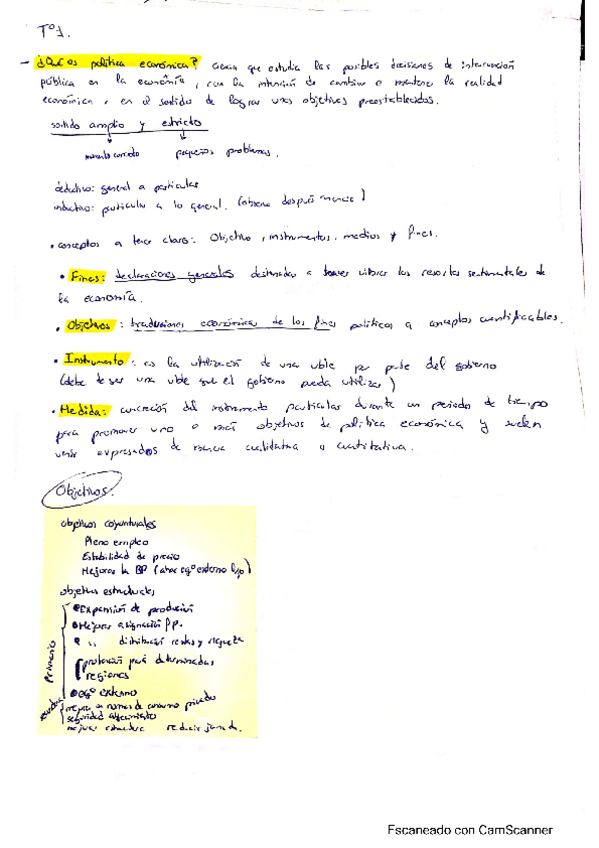 Tº1.
- ¿Qué es política económica? Ciencia que estudia las posibles decisiones de intervención
pública en la economía, con la intención de cambiar o mantener la realidad
económica, en el sentido de lograr unos objetivos preestablecidos.
sentido amplio y estricto
pequeños problemas.
deductivo: general a particular
inductivo: particular a lo general. (observo después
• conceptos a tener claro: Objetivo, instrumentos, medios y fines.
• Fines: declaraciones generales destinadas a hacer vibrar los resortes sentimentales de
la economía.
• Objetivos: traducciones económicas de los fines políticos a conceptos cuantificables.
• Instrumento: es la utilización de una vble por parte del gobierno
(debe de ser una vble que el gobierno pueda utilizar)
• Medida: concreción del instrumento particular durante un periodo de tiempo
para promover uno o más objetivos de política económica y suelen
venir expresados de manera cualitativa o cuantitativa.
Objetivos.
objetivos coyunturales
Pleno empleo
Estabilidad de precio
Mejorar la BP ( eqº externo l/p)
objetivos estructurales
Primarios
• Expansión de producción
• Mejorar asignación ff.pp.
• " distribución rentas y riqueza
protección para determinadas
regiones
• eqº externo
mejora en normas de consumo privado
seguridad abastecimiento
mejorar estructura reducir jornada.
Escaneado con CamScanner